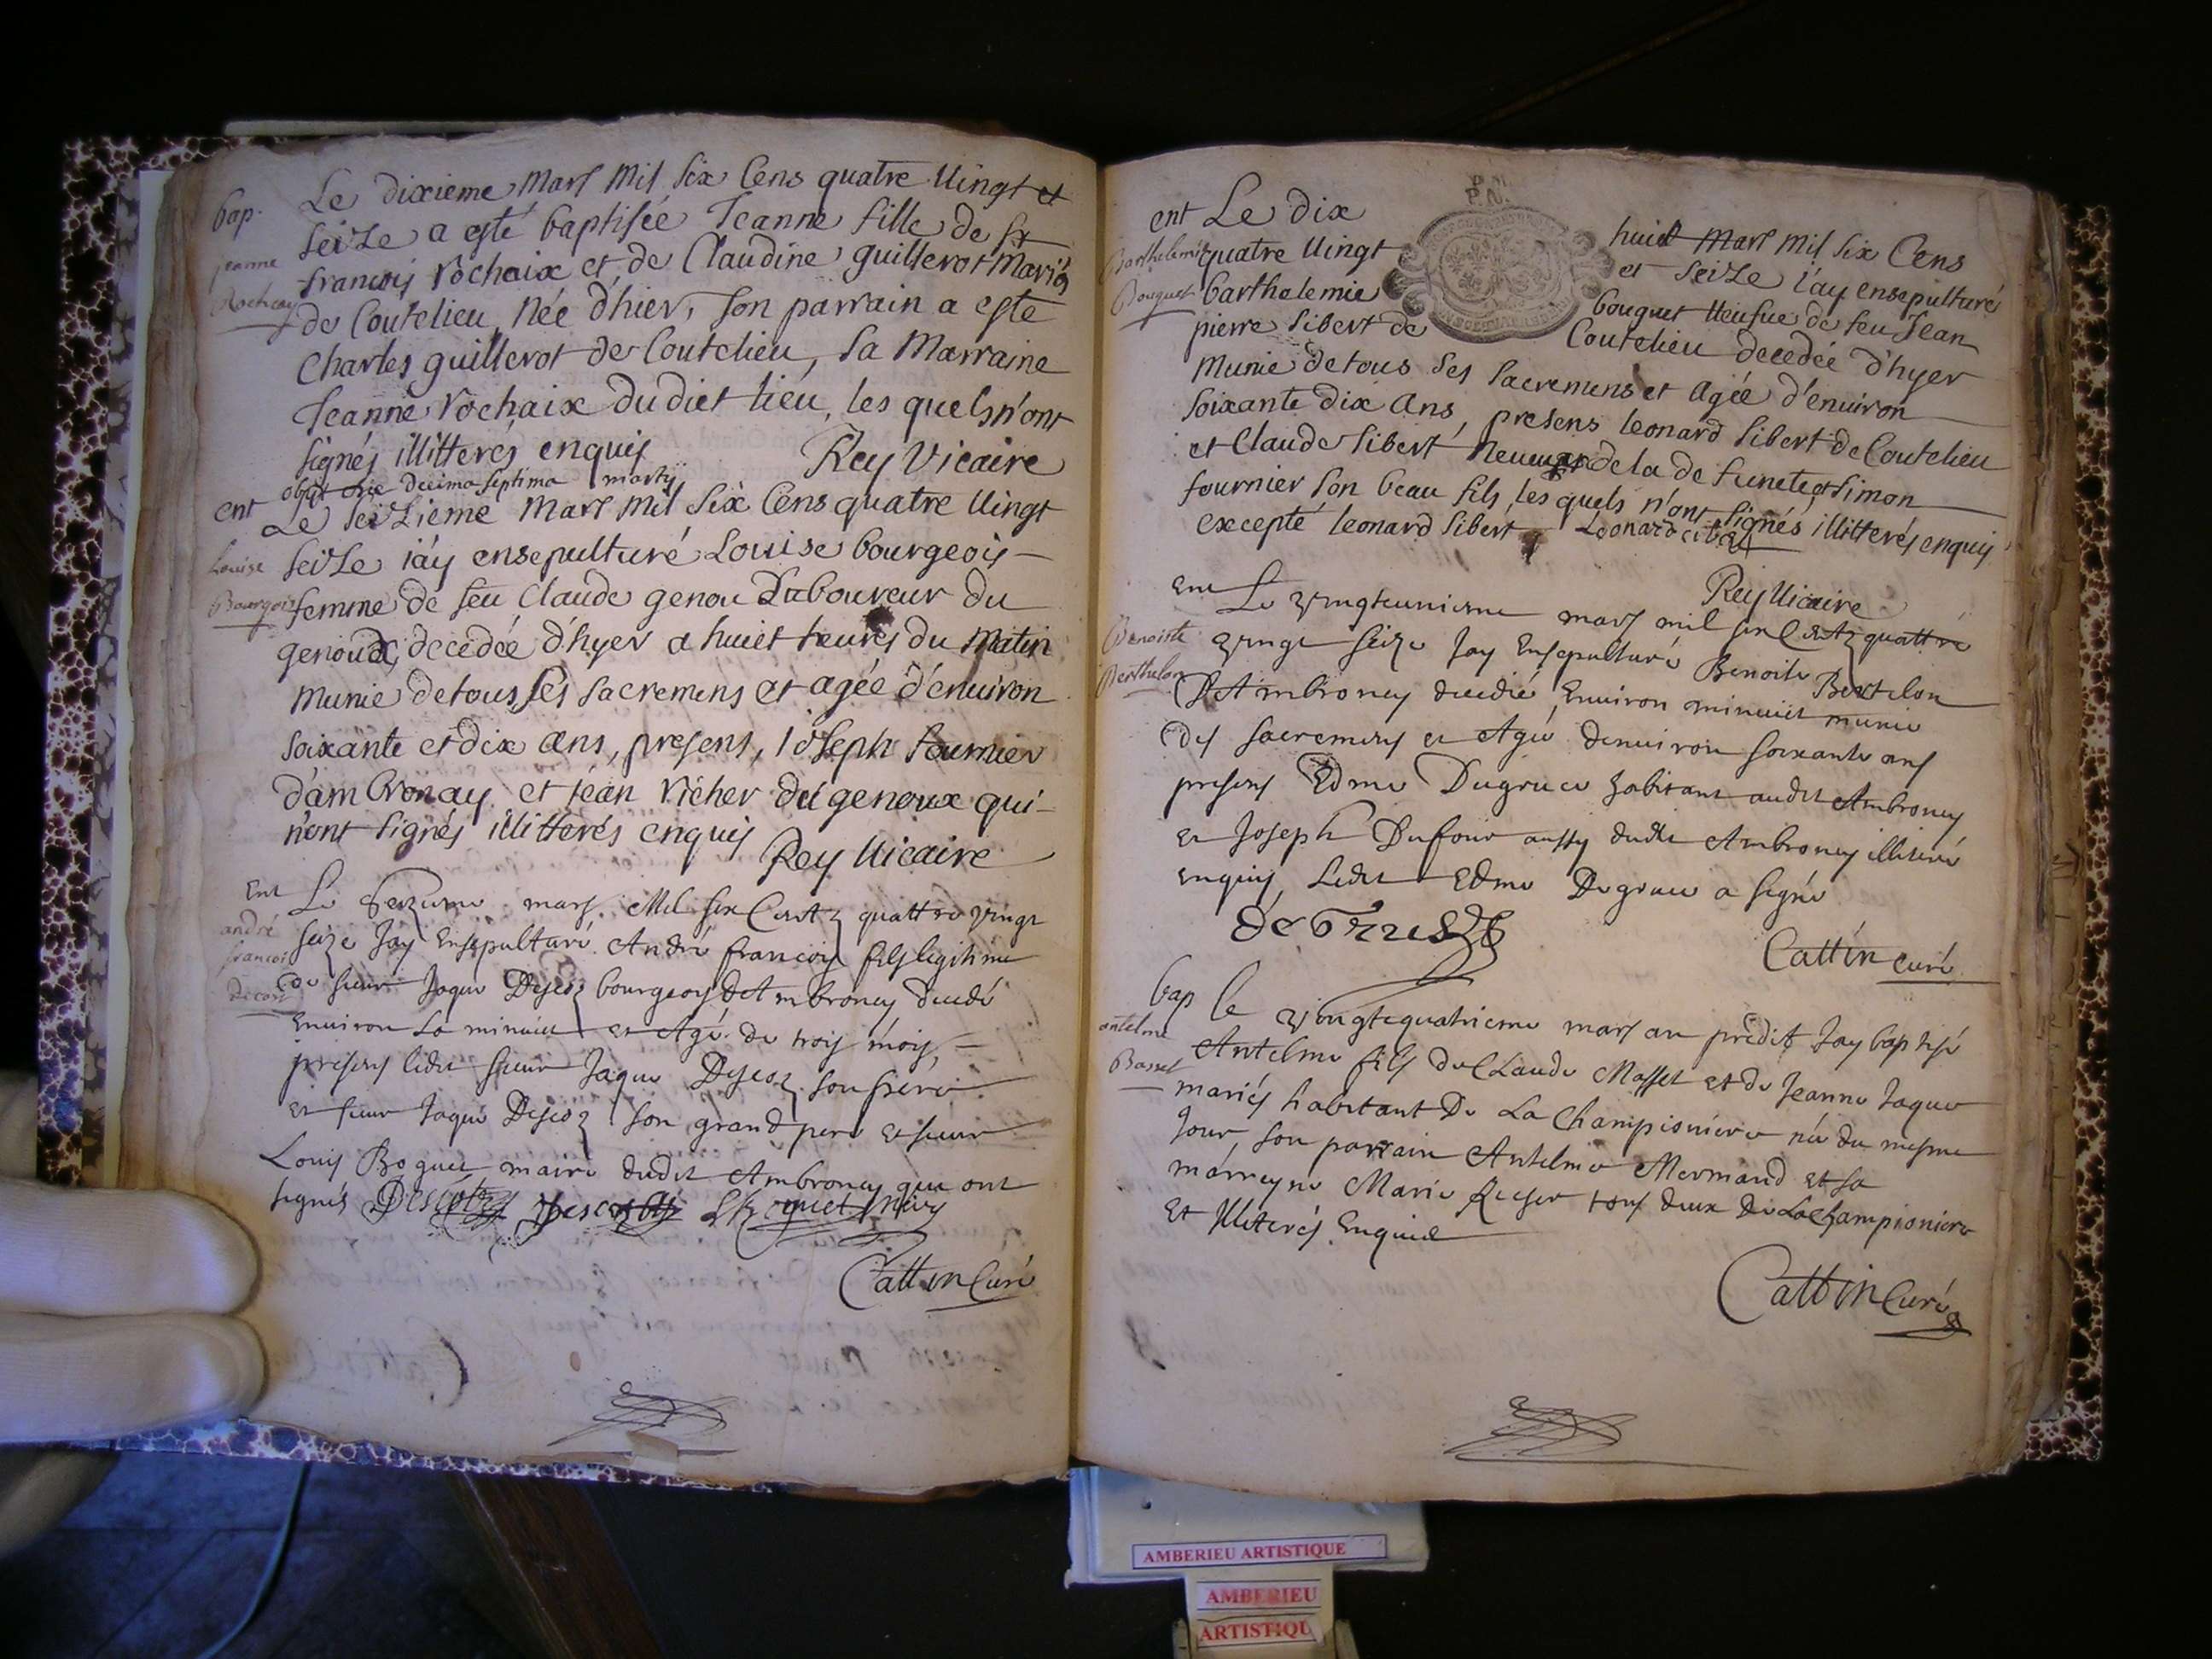 bap.
jeanne
Rochay
Le dixieme Mars Mil Six Cens quatre Vingt et
seize a esté baptisée Jeanne fille de
francois Rochaix et de Claudine guillerot Mariés
de Coutelieu, Née d'hier, son parrain a este
Charles guillerot de Coutelieu, sa Marraine
Jeanne Rochaix dudict lieu, les quels n'ont
signés illitterés enquis
Rey Vicaire
obyt die decima septima martij
ent
Louise
Bourgois
Le Seizieme Mars Mil Six Cens quatre Vingt
seize i'ay ensepulturé Louise bourgeois
femme de feu Claude genou Laboureur du
genoux, decedée d'hyer a huict heures du Matin
Munie de tous ses sacremens et agée d'enuiron
soixante et dix ans, presens, Ioseph fournier
d'ambronay et jean Richer du genoux qui
n'ont signés illitterés enquis
Rey Vicaire
Ent
andré
francois
Le Seizieme mars Mil six Centz quattre vingt
seize Jay Ensepulturé André francois fils legitime
de sieur Jaque Descoz bourgeois d'Ambronay decedé
Enuiron la minuict et Agé de trois mois,
presens ledit sieur Jaque Descoz son frere
et sieur Jaque Descoz son grand pere et sieur
Louis Boguet maire dudit Ambronay qui ont
signés
Cattin Curé
P.N.
ent
Barthelemie
Bouguet
Le dix huict Mars Mil Six Cens
quatre Vingt et seize i'ay ensepulturé
barthelemie bouguet Veufue de feu Jean
pierre Sibert de Coutelieu decedée d'hyer
Munie de tous ses sacremens et Agée d'enuiron
soixante dix Ans, presens leonard Sibert de Coutelieu
et Claude Sibert Neueu de la de functe, et Simon
fournier son beau fils, les quels n'ont signés illitterés enquis
excepté leonard Sibert
Rey Vicaire
Ent
Benoiste
Berthelon
Le vingteunieme mars mil six Centz quattre
vingt seize Jay Ensepulturé Benoite Bertelon
D'Ambronay decedée Enuiron minuict munie
des sacremens et Agée denuiron soixante ans
presens Edme Degruce habitant audit Ambronay
et Joseph Dufour aussy dudit Ambronay illiteré
enquis, Ledit Edme Degruce a signé
Cattin curé
bap
antelme
Basset
le vingtequatrieme mars an prédit Jay baptisé
Antelme fils de Claude Masset et de Jeanne Jaque
mariés habitant De La Championiere né du mesme
Jour, son parrain Antelme Mermand et sa
marreyne Marie Richer tous deux de La Championiere
Et Illiterés Enquis
Cattin Curé
AMBERIEU ARTISTIQUE
AMBERIEU
ARTISTIQU